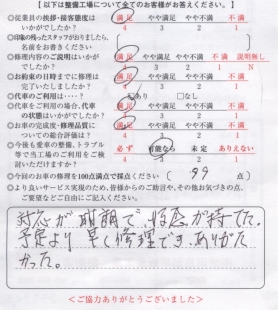 【以下は整備工場について全てのお客様がお答えください。】
◎従業員の挨拶・接客態度は 満足 やや満足 やや不満 不満
いかがでしたか? 4 3 2 1
◎印象の残ったスタッフがおりましたら、
名前をお書きください
◎修理内容のご説明はいかが 満足 やや満足 やや不満 不満 説明無し
でしたか? 4 3 2 1 N
◎お約束の日時までに修理は 満足 やや満足 やや不満 不満
完了いたしましたか? 4 3 2 1
◎代車のご利用は・・・? あり なし
◎代車をご利用の場合、代車 満足 やや満足 やや不満 不満
の状態はいかがでしたか? 4 3 2 1
◎お車の完成度・修理品質に 満足 やや満足 やや不満 不満
ついての総合評価は? 4 3 2 1
◎今後も愛車の整備、トラブル 必ず 可能なら 未定 ありえない
等で当工場のご利用をご検 4 3 2 1
討いただけますか?
◎今回のお車の修理を100点満点で採点ください ( 99 点 )
◎より良いサービス実現のため、皆様からのご助言や、その他お気づきの点、
ご要望などご自由にご記入ください。
対応が で、好感が持てた。
予定より早く修理でき、ありがた
かった。
<ご協力ありがとうございました>